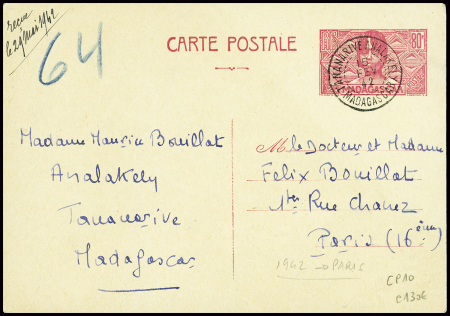 reçu
le 29 Mai 1942
64
CARTE POSTALE
80c
TANANARIVE ANALAKELY
FEV
42
MADAGASCAR
MADAGASCAR
Madame Maurice Bouillat
Analakely
Tananarive
Madagascar
M. le Docteur et Madame
Felix Bouillat
1ter Rue Chanez
Paris (16ème)
1942 → PARIS
CP10
c130€